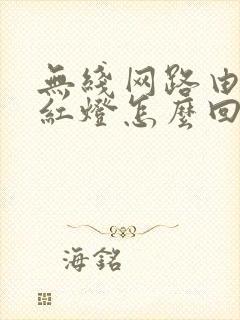 無綫网路由
紅燈怎麼回
海銘